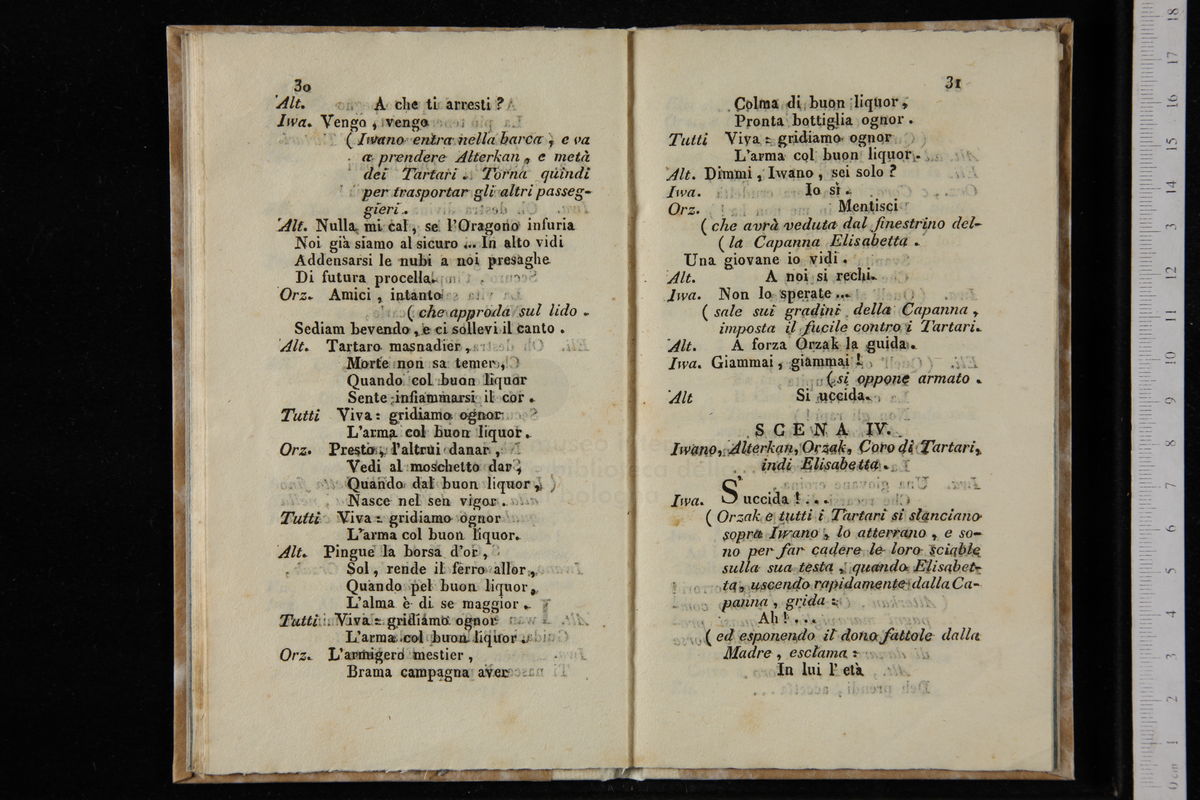 30
Alt. A che ti arresti ?
Iwa. Vengo , vengo
( Iwano entra nella barca , e va
a prendere Alterkan , e metà
dei Tartari . Torna quindi
per trasportar gli altri passeg-
gieri .
Alt. Nulla mi cal , se l'Oragono infuria
Noi già siamo al sicuro ... In alto vidi
Addensarsi le nubi a noi presaghe
Di futura procella.
Orz. Amici , intanto
( che approda sul lido .
Sediam bevendo , e ci sollevi il canto .
Alt. Tartaro masnadier ,
Morte non sa temer ,
Quando col buon liquor
Sente infiammarsi il cor .
Tutti Viva : gridiamo ognor
L'arma col buon liquor .
Orz. Presto , l'altrui danar ,
Vedi al moschetto dar ,
Quando dal buon liquor ,
Nasce nel sen vigor .
Tutti Viva : gridiamo ognor
L'arma col buon liquor .
Alt. Pingue la borsa d'or ,
Sol , rende il ferro allor ,
Quando pel buon liquor ,
L'alma è di se maggior .
Tutti Viva : gridiamo ognor
L'arma col buon liquor .
Orz. L'armigero mestier ,
Brama campagna aver
31
Colma di buon liquor ,
Pronta bottiglia ognor .
Tutti Viva : gridiamo ognor
L'arma col buon liquor .
Alt. Dimmi , Iwano , sei solo ?
Iwa. Io sì .
Orz. Mentisci
( che avrà veduta dal finestrino del-
( la Capanna Elisabetta .
Una giovane io vidi .
Alt. A noi si rechi.
Iwa. Non lo sperate ...
( sale sui gradini della Capanna ,
imposta il fucile contro i Tartari.
Alt. A forza Orzak la guida .
Iwa. Giammai , giammai !
( si oppone armato .
Alt Si uccida .
SCENA IV.
Iwano, Alterkan, Orzak, Coro di Tartari,
indi Elisabetta .
Iwa. S'uccida ! ...
( Orzak e tutti i Tartari si slanciano
sopra Iwano , lo atterrano , e so-
no per far cadere le loro sciable
sulla sua testa , quando Elisabet-
ta , uscendo rapidamente dalla Ca-
panna , grida :
Ah ! ...
( ed esponendo il dono fattole dalla
Madre , esclama :
In lui l' età